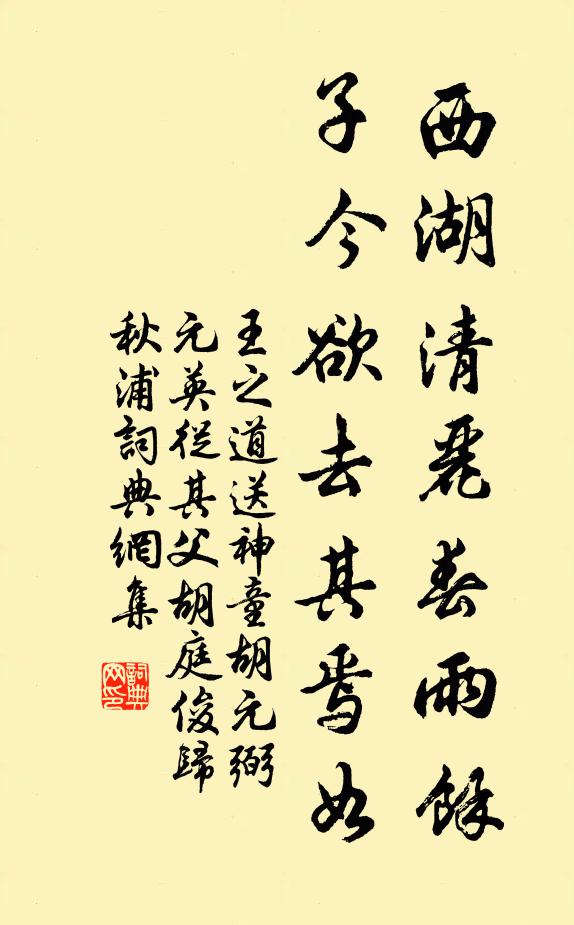 西湖清麗春雨餘
子今欲去其焉如
王之道送神童胡元弼
元英從其父胡庭俊歸
秋浦詞典網集
詞典網印